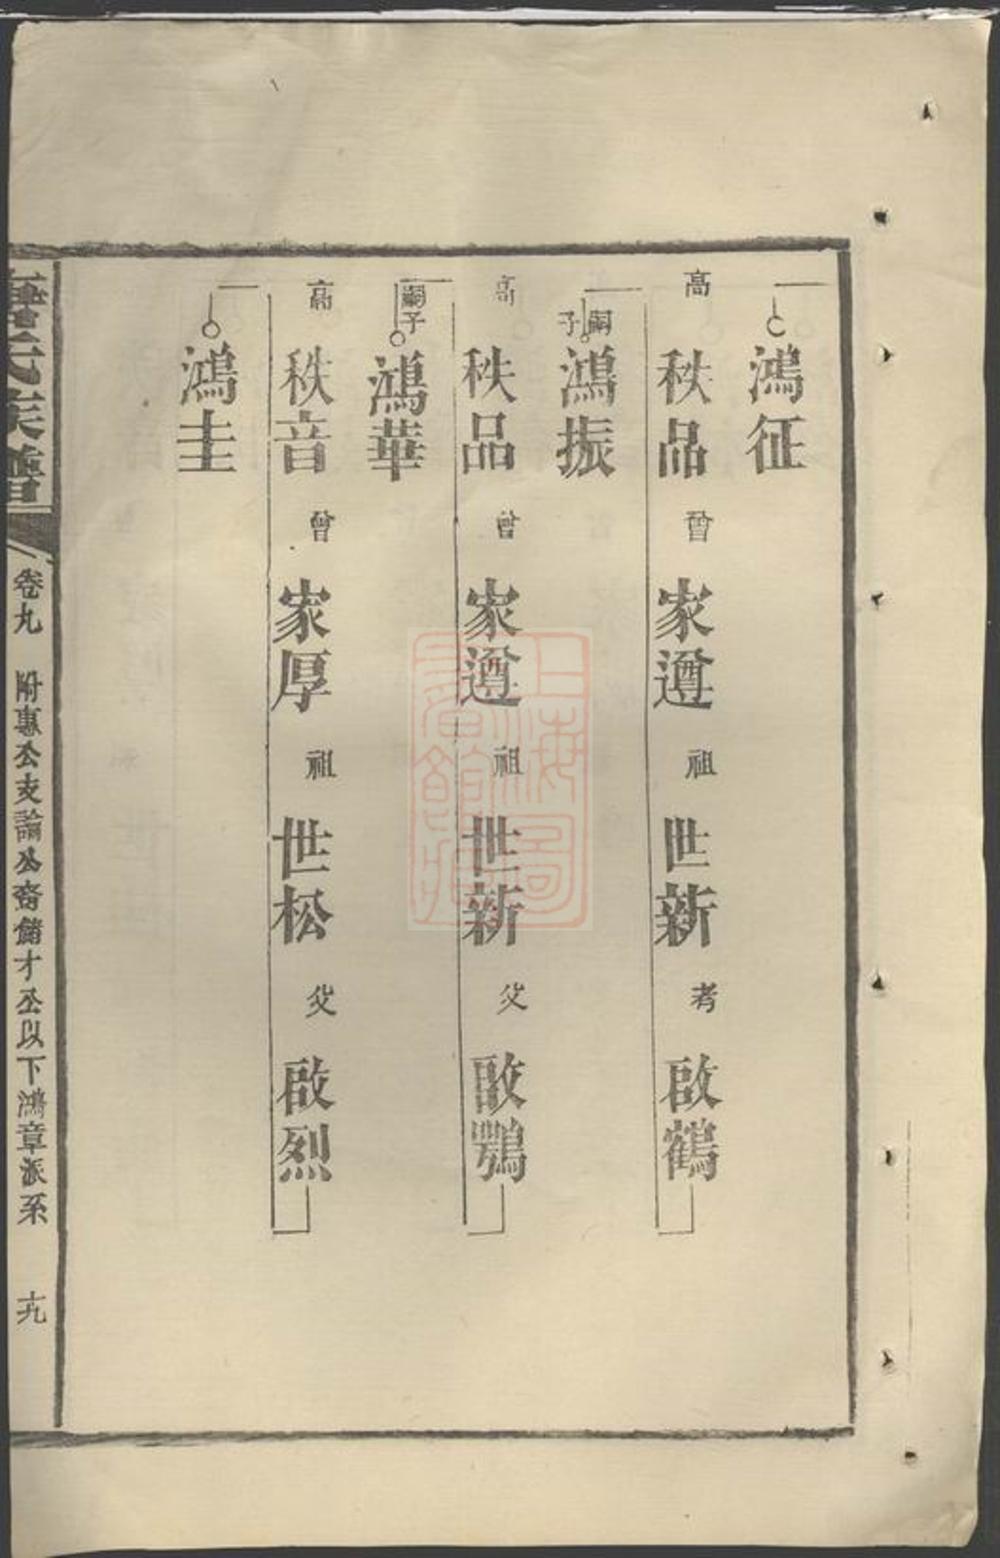 鴻征
高 秩品 曾 家遵 祖 世新 考 啟鶴
嗣子 鴻振
高 秩品 曾 家遵 祖 世新 父 啟鶚
嗣子 鴻華
高 秩音 曾 家厚 祖 世松 父 啟烈
鴻圭
氏族譜 卷九 附專公支論公裔儲才公以下鴻章派系 十九
上海圖書館藏